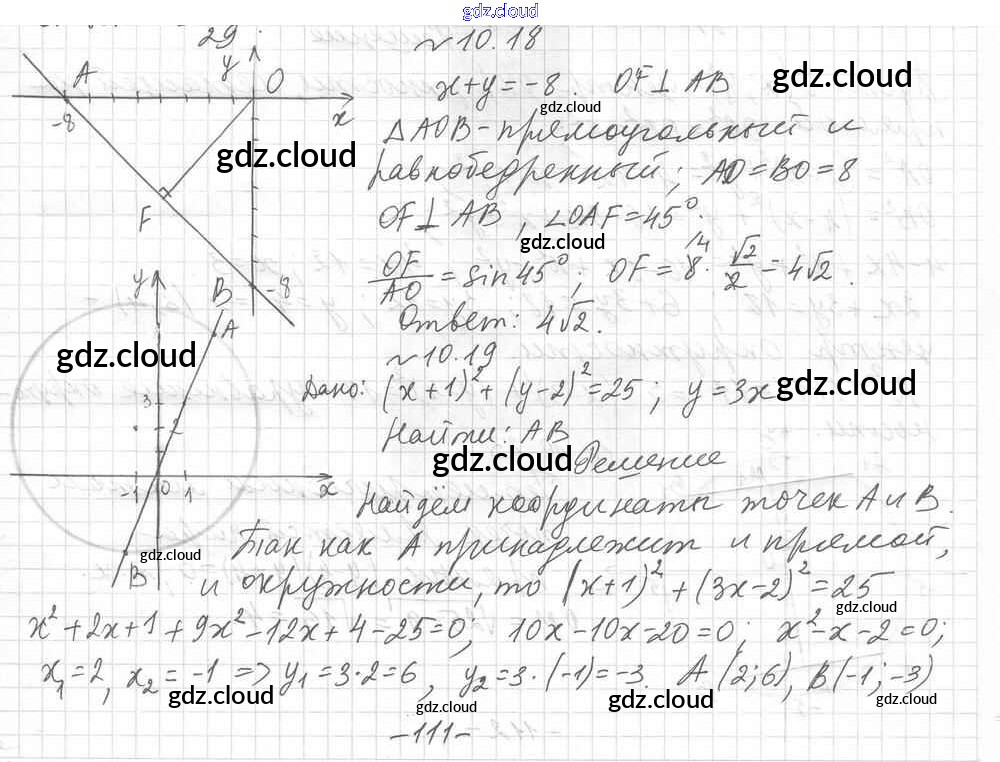 gdz.cloud
29.
№10.18
y A O
x+y=-8. OF⊥AB gdz.cloud
-8 x gdz.cloud
△AOB - прямоугольный и
gdz.cloud
равнобедренный; AO=BO=8
F OF⊥AB, ∠OAF=45°.
gdz.cloud
OF/AO = sin45°; OF = 8⁄4 · √2/2 = 4√2.
y B -8
A Ответ: 4√2.
gdz.cloud №10.19
Дано: (x+1)²+(y-2)²=25; y=3x gdz.cloud
3 2 Найти: AB
gdz.cloud Решение
-1 0 1 x
Найдём координаты точек A и B.
gdz.cloud Так как A принадлежит и прямой,
B и окружности, то (x+1)²+(3x-2)²=25
gdz.cloud
x²+2x+1+9x²-12x+4-25=0; 10x-10x-20=0; x²-x-2=0;
x₁=2, x₂=-1 => y₁=3·2=6, y₂=3·(-1)=-3. A(2;6), B(-1;-3)
gdz.cloud gdz.cloud gdz.cloud
-111-